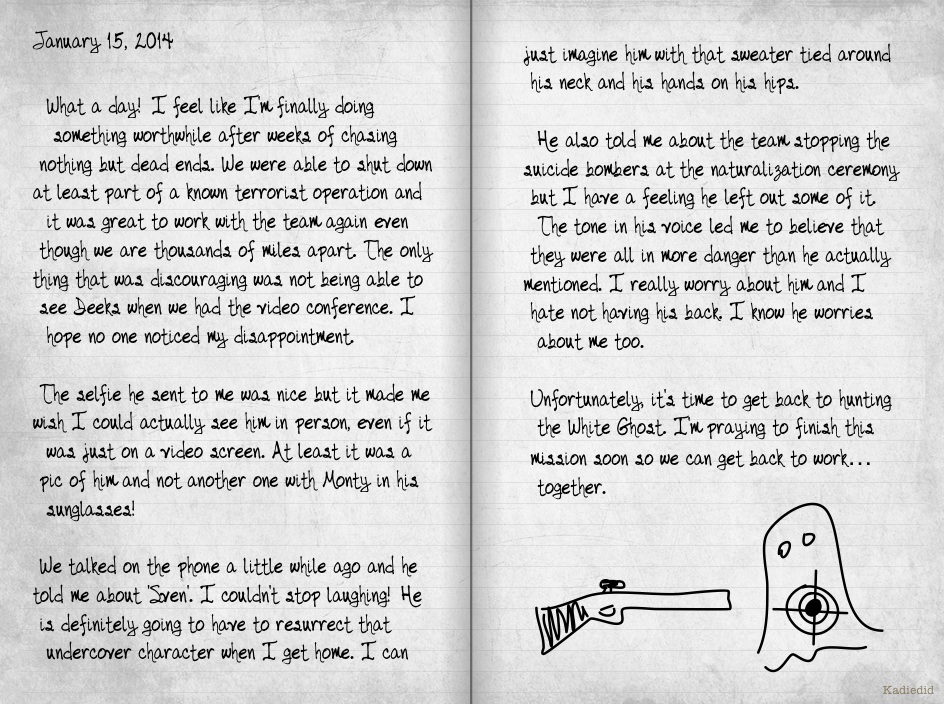 January 15, 2014
What a day! I feel like I'm finally doing
something worthwhile after weeks of chasing
nothing but dead ends. We were able to shut down
at least part of a known terrorist operation and
it was great to work with the team again even
though we are thousands of miles apart. The only
thing that was discouraging was not being able to
see Deeks when we had the video conference. I
hope no one noticed my disappointment.
The selfie he sent to me was nice but it made me
wish I could actually see him in person, even if it
was just on a video screen. At least it was a
pic of him and not another one with Monty in his
sunglasses!
We talked on the phone a little while ago and he
told me about 'Sven'. I couldn't stop laughing! He
is definitely going to have to resurrect that
undercover character when I get home. I can
just imagine him with that sweater tied around
his neck and his hands on his hips.
He also told me about the team stopping the
suicide bombers at the naturalization ceremony
but I have a feeling he left out some of it.
The tone in his voice led me to believe that
they were all in more danger than he actually
mentioned. I really worry about him and I
hate not having his back. I know he worries
about me too.
Unfortunately, it's time to get back to hunting
the White Ghost. I'm praying to finish this
mission soon so we can get back to work...
together.
Kadiedid